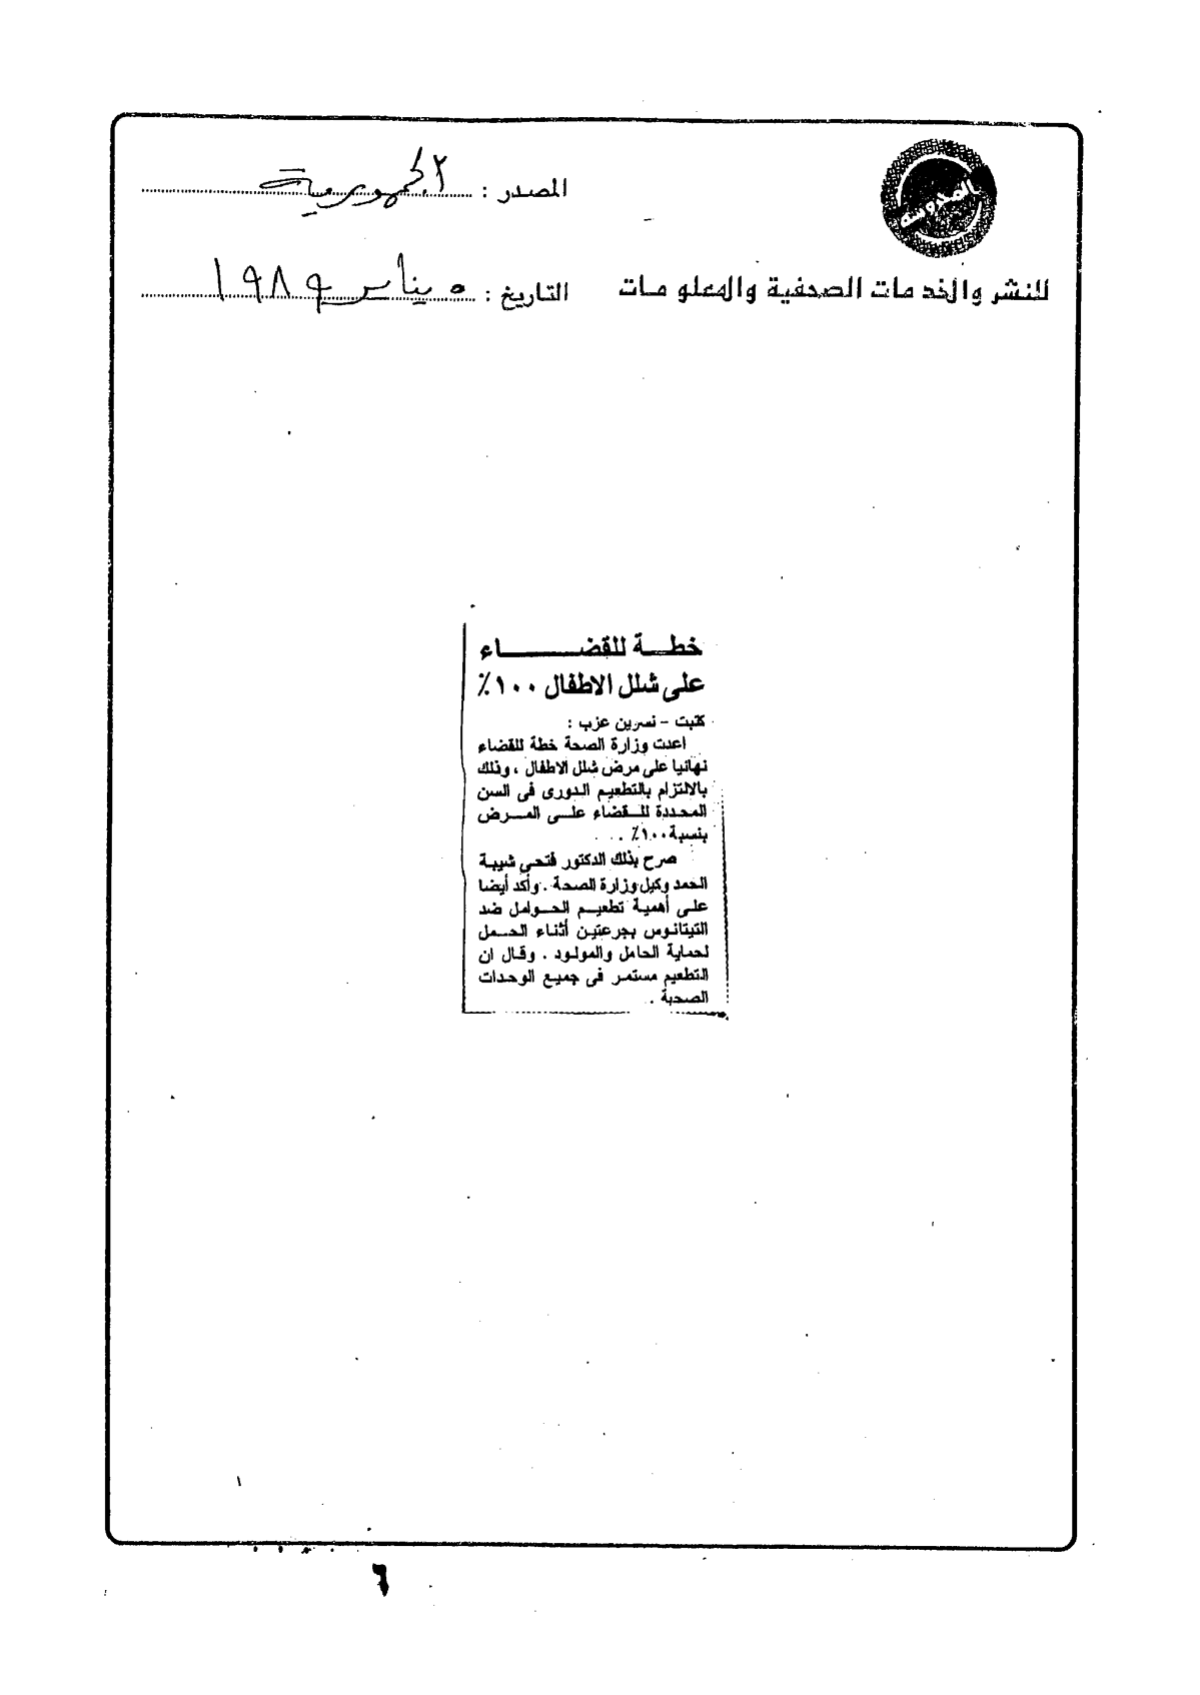 المصدر : الجمهورية
للنشر والخدمات الصحفية والمعلومات
التاريخ : ٥ يناير ١٩٨٩
خطة للقضاء
على شلل الاطفال ١٠٠٪
كتبت - نسرين عزب :
اعدت وزارة الصحة خطة للقضاء
نهائيا على مرض شلل الاطفال ، وذلك
بالالتزام بالتطعيم الدورى فى السن
المحددة للقضاء على المرض
بنسبة ١٠٠٪ .
صرح بذلك الدكتور فتحى شيبة
الحمد وكيل وزارة الصحة . وأكد أيضا
على أهمية تطعيم الحوامل ضد
التيتانوس بجرعتين أثناء الحمل
لحماية الحامل والمولود . وقال ان
التطعيم مستمر فى جميع الوحدات
الصحية .
٦